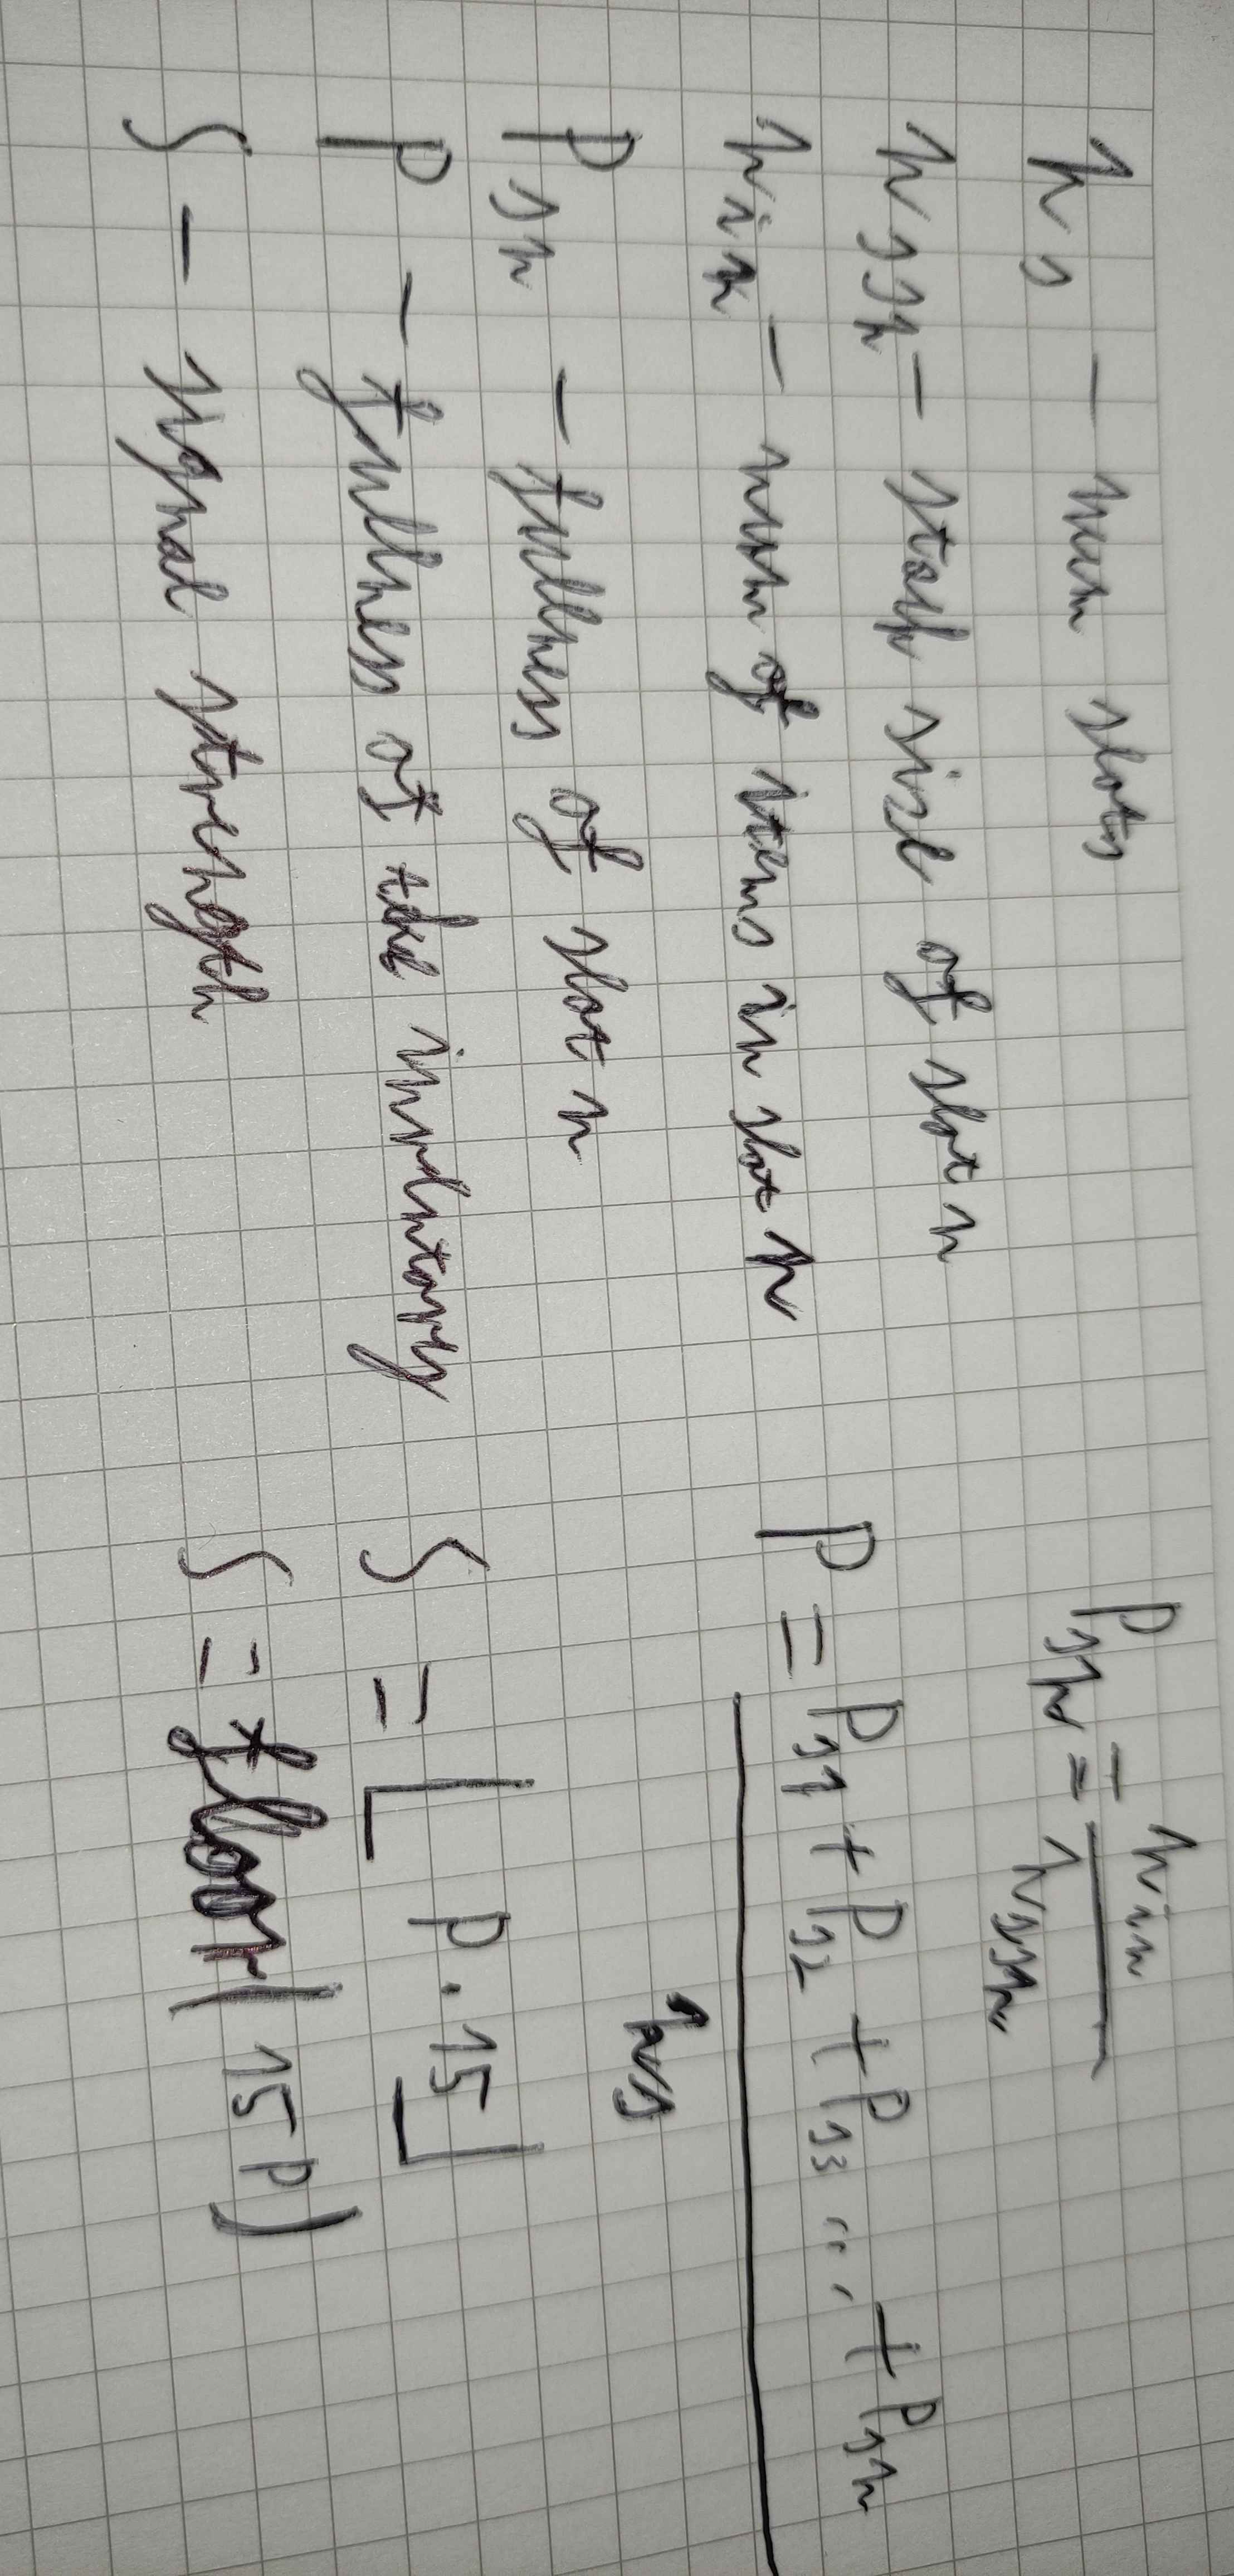 ns - num slots
nssn - stack size of slot n
nin - num of items in slot n
Psn - fullness of slot n
P - fullness of the inventory
S - signal strength
Psn = nin / nssn
P = Ps1 + Ps2 + Ps3 ... + Psn
ns
S = ⌊ P · 15 ⌋
S = floor( 15 P )